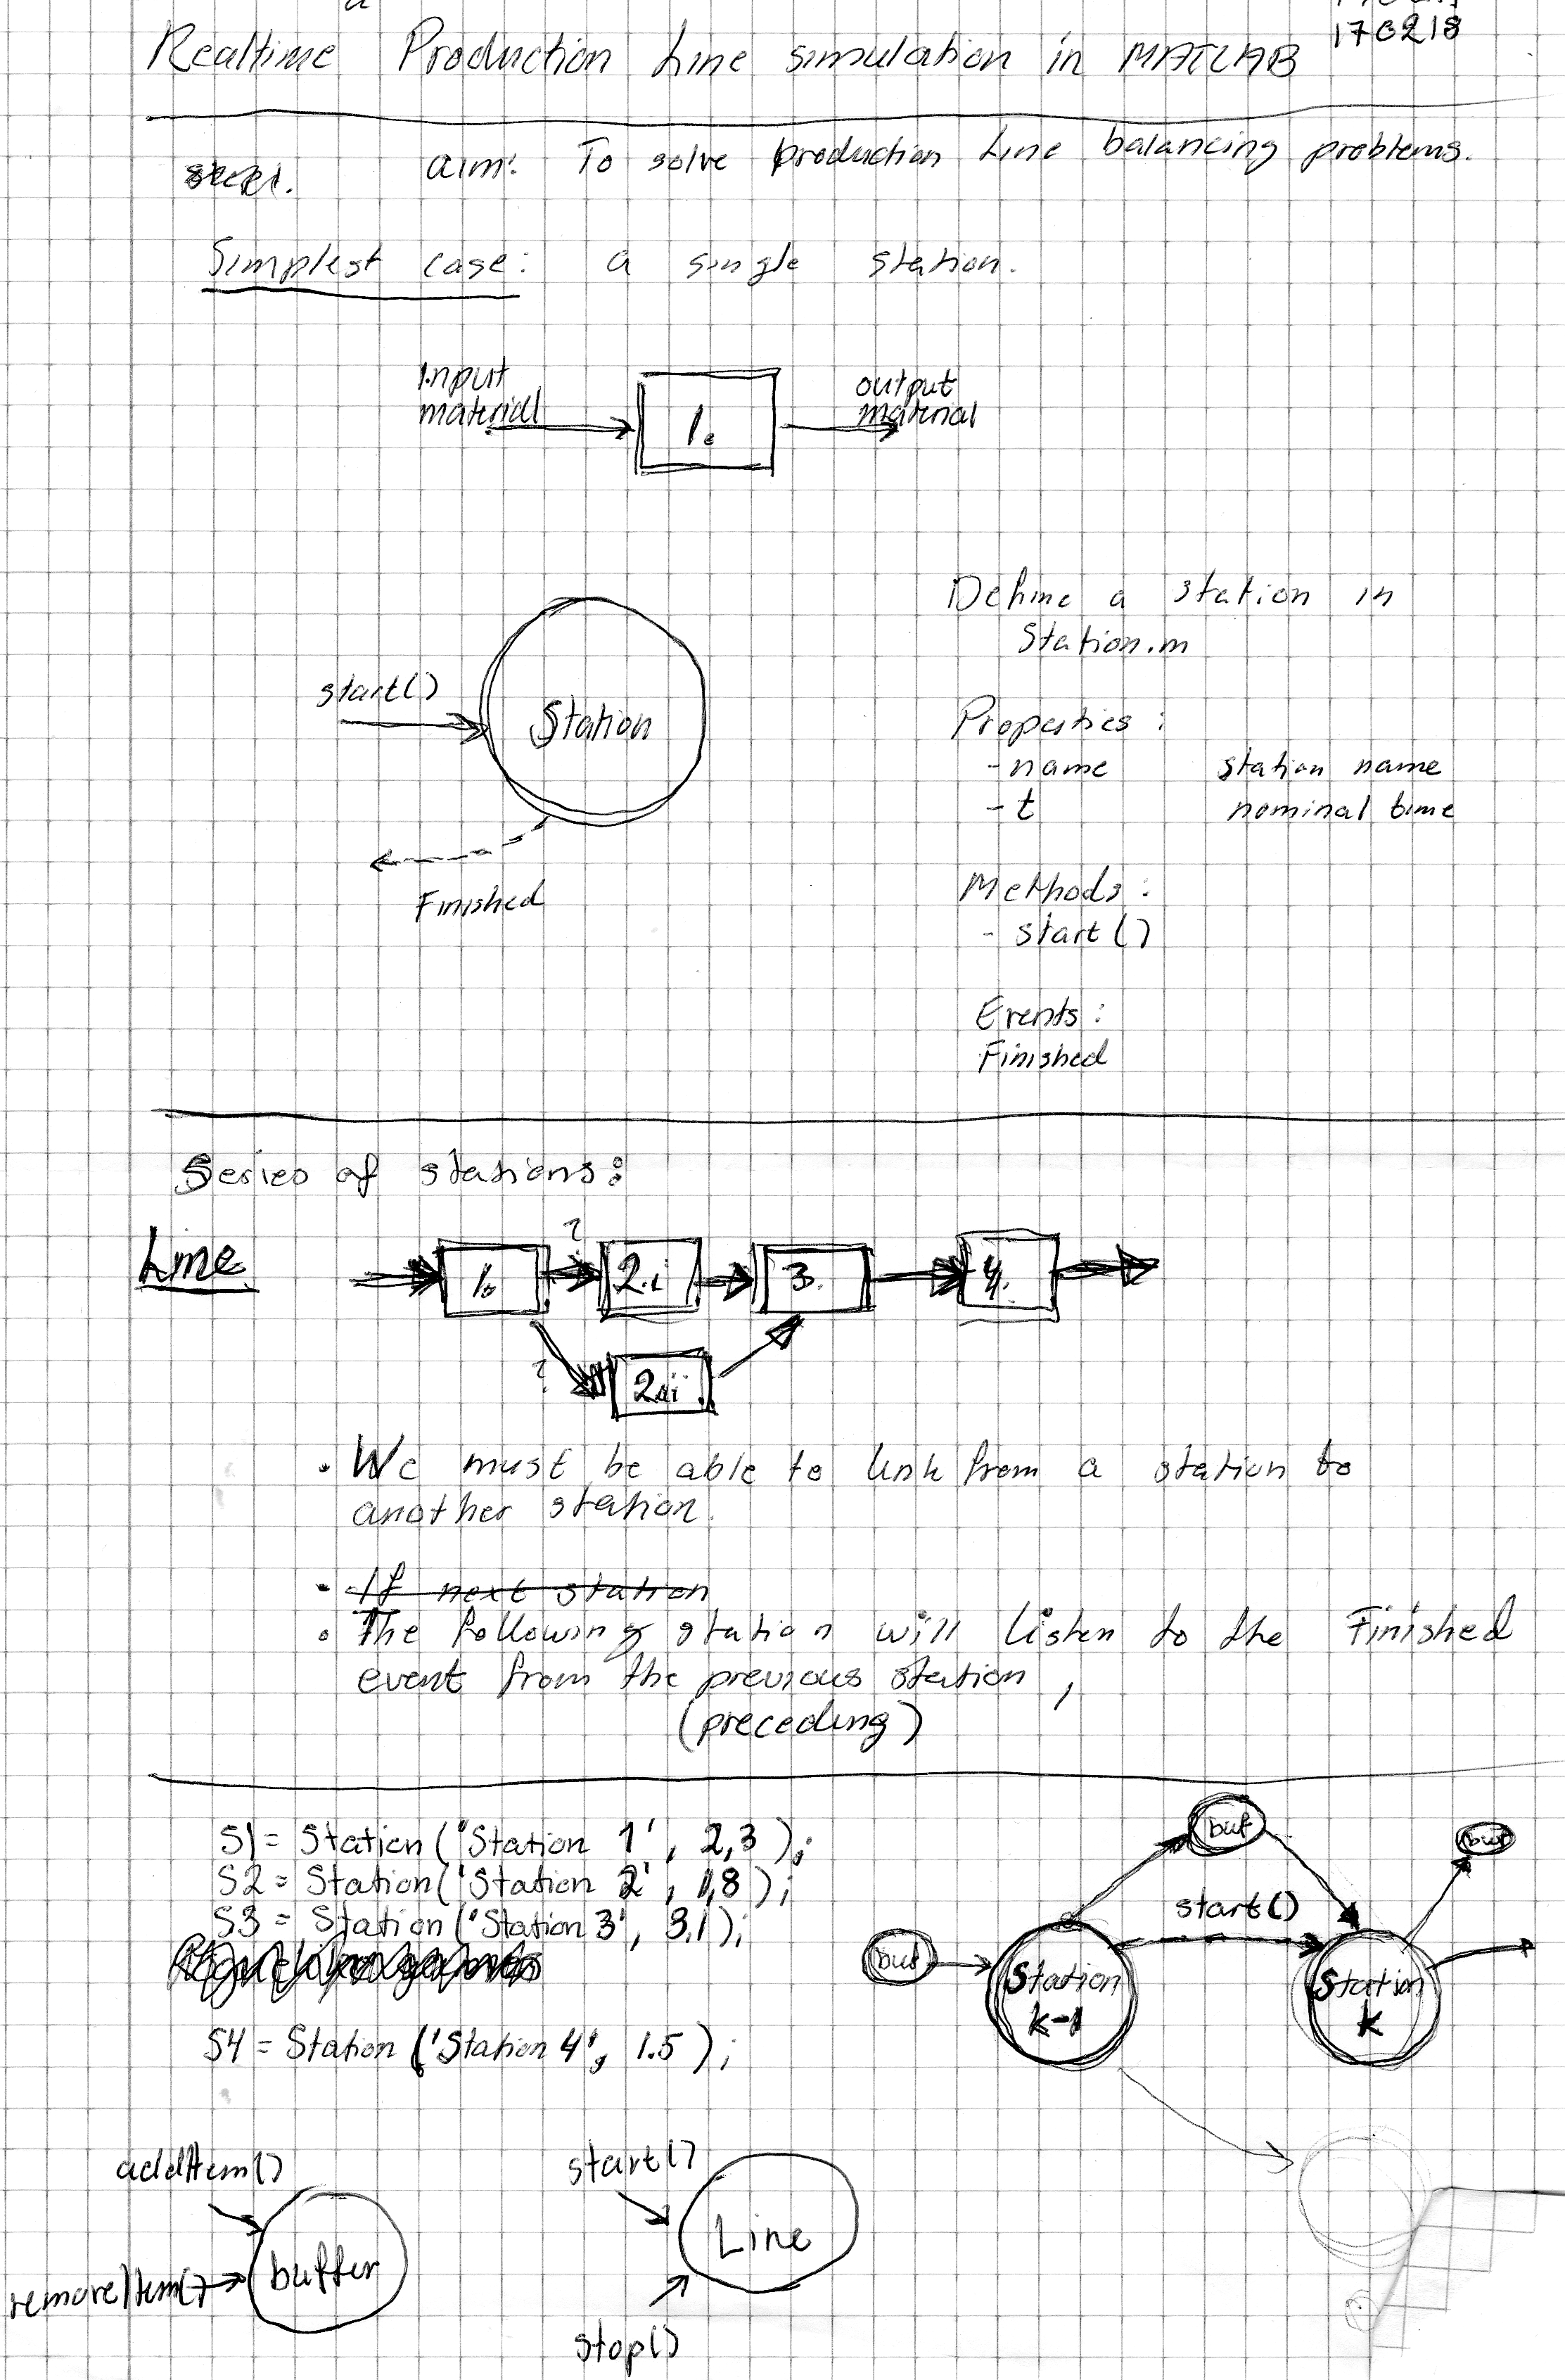 170218
Realtime Production Line simulation in MATLAB
aim: To solve production Line balancing problems.
Simplest case: a single station.
Input
material
1.
output
material
Define a station in
Station.m
start()
Station
Properties:
-name station name
-t nominal time
Finished
Methods:
- start()
Events:
Finished
Series of stations:
Line
1. ? 2.i 3. 4.
? 2.ii
• We must be able to link from a station to
another station.
• If next station
• The following station will listen to the Finished
event from the previous station,
(preceding)
S1= Station('Station 1', 2,3);
S2= Station('Station 2', 1,8);
S3 = Station('Station 3', 3,1);
S4 = Station('Station 4', 1.5);
buf
buf
start()
buf
Station
k-1
Station
k
addItem()
removeItem()
buffer
start()
Line
stop()